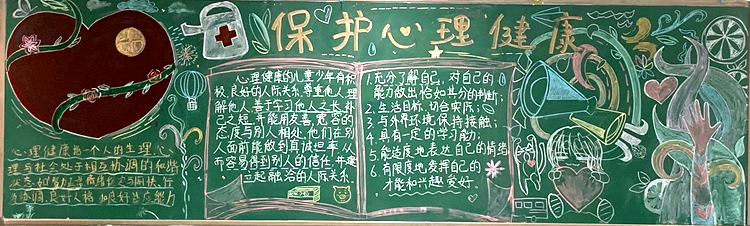 保护心理健康
心理健康指一个人的生理、心
理与社会处于相互协调的和谐
心理健康的儿童少年有积
极,良好的人际关系,尊重他人,理
解他人,善于学习他人之长,补
己之短,并能用友善、宽容的
态度与别人相处,他们在别
人面前能做到真诚坦率,从
而容易得到别人的信任,并建
立起融洽的人际关系.
1.充分了解自己,对自己的
能力做出恰如其分的判断;
2.生活目标,切合实际;
3.与外界环境保持接触;
4.具有一定的学习能力;
5.能适度地表达自己的情绪
6.有限度地发挥自己的
才能和兴趣爱好.